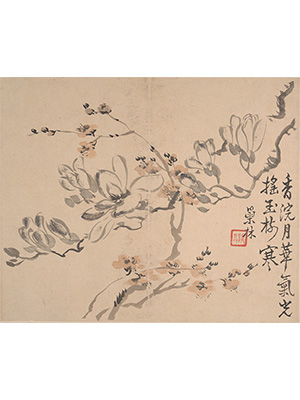 香浣月華氣光
摇玉樹寒
景林